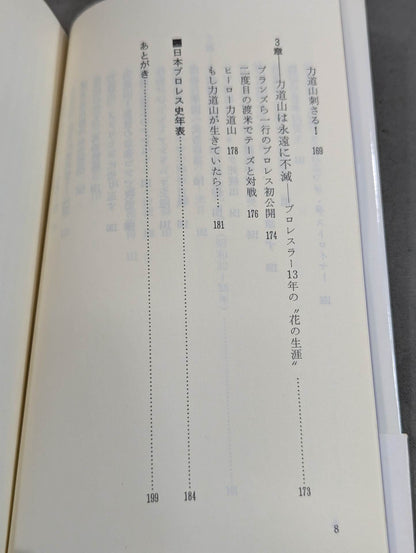 力道山刺さる！ 169
3章——力道山は永遠に不滅——プロレスラー13年の〝花の生涯〟……173
ブランズら一行のプロレス初公開 174
二度目の渡米でテーズと対戦 176
ヒーロー力道山 178
もし力道山が生きていたら…… 181
■日本プロレス史年表……184
あとがき……199
8